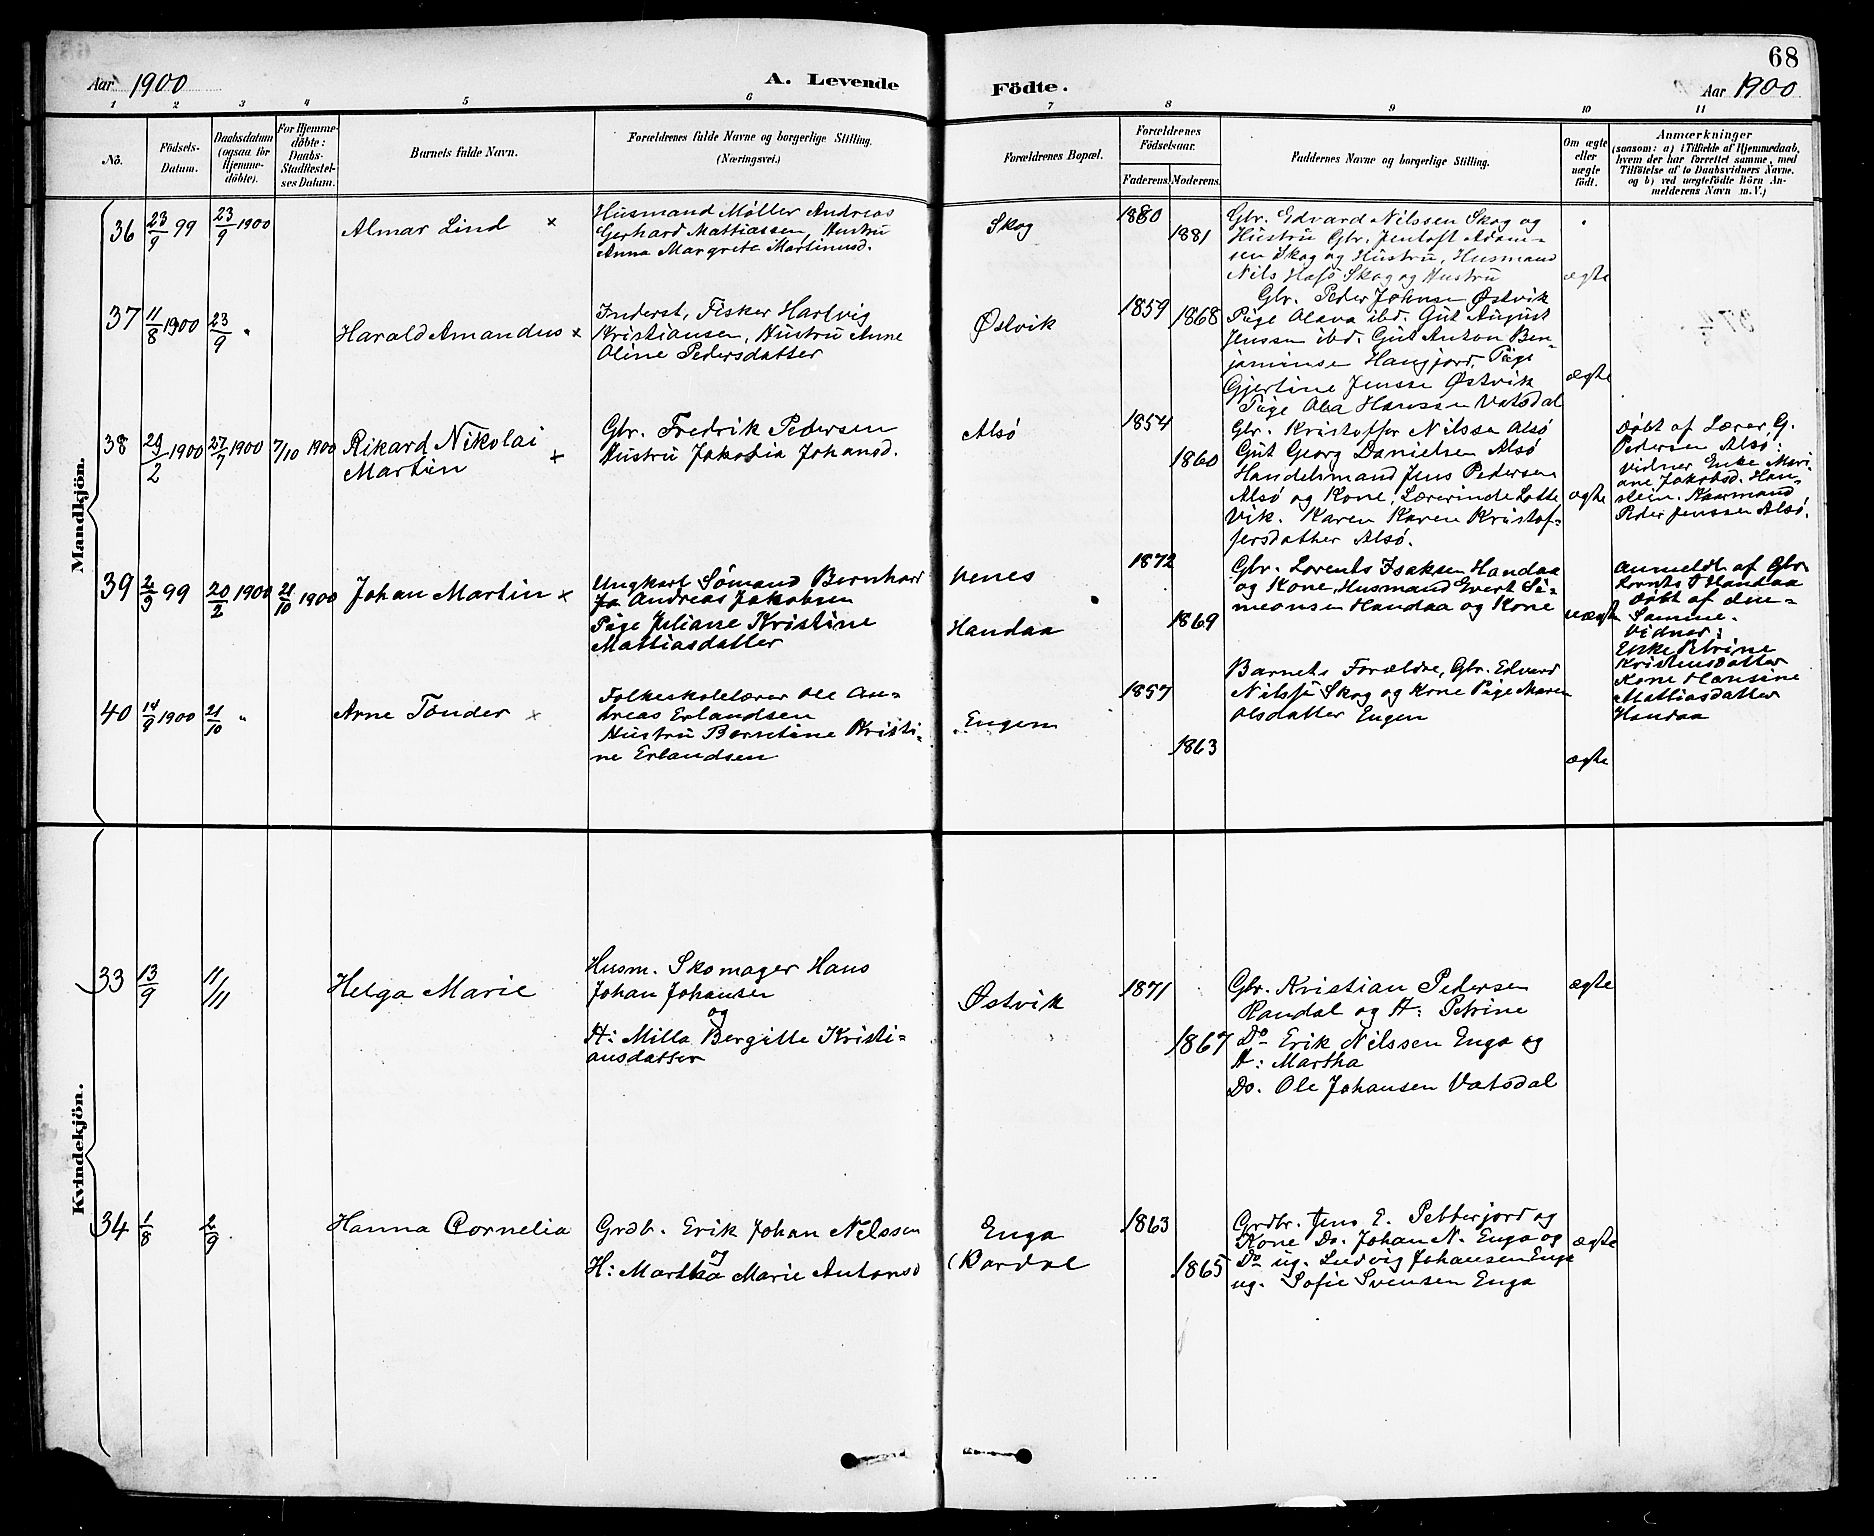 68
Aar 1900
A. Levende
Födte.
Aar 1900
1 2 3 4 5 6 7 8 9 10 11
No.
Födsels-
Datum.
Daabsdatum
(ogsaa for
Hjemme-
döbte).
For Hjemme-
döbte:
Daabs-
Stadfæstel-
ses Datum.
Barnets fulde Navn.
Forældrenes fulde Navne og borgerlige Stilling.
(Næringsvei.)
Forældrenes Bopæl.
Forældrenes
Födselsaar.
Faderens. Moderens.
Faddernes Navne og borgerlige Stilling.
Om ægte
eller
uægte
födt.
Anmærkninger
(saasom: a) i Tilfælde af Hjemmedaab,
hvem der har forrettet samme, med
Tilföielse af to Daabsvidners Navne.
og b) ved uægtefödte Börn An-
melderens Navn m. V.)
Mandkjön.
36 23/9 99 23/9 1900
Almar Lind ×
Husmand Møller Andreas
Gerhard Mattiassen, Hustru
Anna Margrete Martinusd.
Skog
1880
1881
Gbr. Edvard Nilssen Skog og
Hustru Gbr. Jentoft Adam-
sen Skog og Hustru, Husmand
Nils Skog og Hustru
ægte
37 11/8 1900 23/9 "
Harald Amandus ×
Inderst, Fisker Hartvig
Kristiansen, Hustru Anne
Oline Pedersdatter
Østvik
1859
1868
Gbr. Peder Johnsen Østvik
Pige Alava ibd. Gut August
Jenssen ibd. Gut Anton Ben-
jaminsen Hangjord, Pige
Gjertine Jensse Østvik
Pige Ala Hanssen Vatsdal
ægte
38 29/2 1900 27/7 1900 7/10 1900
Rikard Nikolai
Martin ×
Gbr. Fredrik Pedersen
Hustru Jakobia Johansd.
Alsø
1854
1860
Gbr. Kristoffer Nilssen Alsø
Gut Georg Danielsen Alsø
Handelsmand Jens Pedersen
Alsø og Kone, Lærerinde Lotte
Vik. Karen Karen Kristof-
fersdatter Alsø.
ægte
Døbt af Lærer G.
Pedersen Alsø.
Vidner Enke Mari-
ane Jakobsd. Han-
stein. Kaarmand
Peder Jenssen Alsø.
39 2/9 99 20/2 1900 21/10 1900
Johan Martin ×
Ungkarl Sømand Bernhard
Andreas Jakobsen
Pige Juliane Kristine
Mattiasdatter
Venes
Handaa
1872
1869
Gbr. Lorents Isaksen Handaa
og Kone, Husmand Evert Si-
meonsen Handaa og Kone
uægte
Anmeldt af Gbr.
Lornts I Handaa
Døbt af den-
Samme.
Vidner:
Enke Petrine
Kristensdatter
Kone Hansine
Mattiasdatter
Handaa
40 14/9 1900 21/10 "
Arne Tønder ×
Folkeskolelærer Ole An-
dreas Erlandsen
Hustru Berntine Kristi-
ne Erlandsen
Engen
1857
1863
Barnets Forældre, Gbr. Edvard
Nilssen Skog og Kone Pige Maren
Olsdatter Engen
ægte
Kvindekjön.
33 13/9 11/11
Helga Marie
Husm. Skomager Hans
Johan Johansen
og
H: Milla Bergitte Kristi-
ansdatter
Østvik
1871
1867
Gbr. Kristian Pedersen
Randal og H: Petrine
Do Erik Nilssen Enga og
H: Martha
Do. Ole Johansen Vatsdal
ægte
34 1/8 2/9
Hanna Cornelia
Grdb. Erik Johan Nilssen
og
H: Martha Marie Antonsd
Enga
(Bardal
1863
1865
Grdbr. Jens E. Petterjord og
Kone Do. Johan N. Enga og
Do ug. Ludvig Johansen Enga
ug. Sofie Svensen Enga
ægte